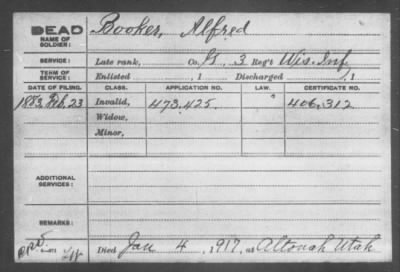 DEAD Booker, Alfred
NAME OF SOLDIER:
SERVICE: Late rank, Co. G, 3 Reg't Wis. Inf.
TERM OF SERVICE: Enlisted , 1 Discharged , 1
DATE OF FILING. CLASS. APPLICATION NO. LAW. CERTIFICATE NO.
1883, Feb. 23 Invalid, 473,425. 406,312
Widow,
Minor,
ADDITIONAL SERVICES:
REMARKS:
Died Jan 4, 1917, at Altonah Utah